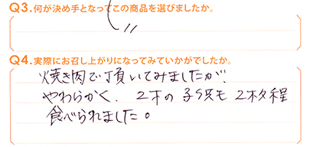 Q3.何が決め手となってこの商品を選びましたか。
〃
Q4.実際にお召し上がりになってみていかがでしたか。
焼き肉で頂いてみましたが
やわらかく、2才の子供も2枚程
食べられました。